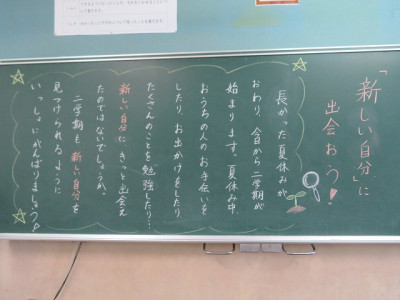 「新しい自分に
出会おう!
長かった夏休みが
おわり、今日から二学期が
始まります。夏休み中、
おうちの人のお手伝いを
したり、お出かけをしたり
たくさんのことを勉強したり…
新しい自分にきっと出会え
たのではないでしょうか。
二学期も新しい自分を
見つけられるように
いっしょにがんばりましょう♪